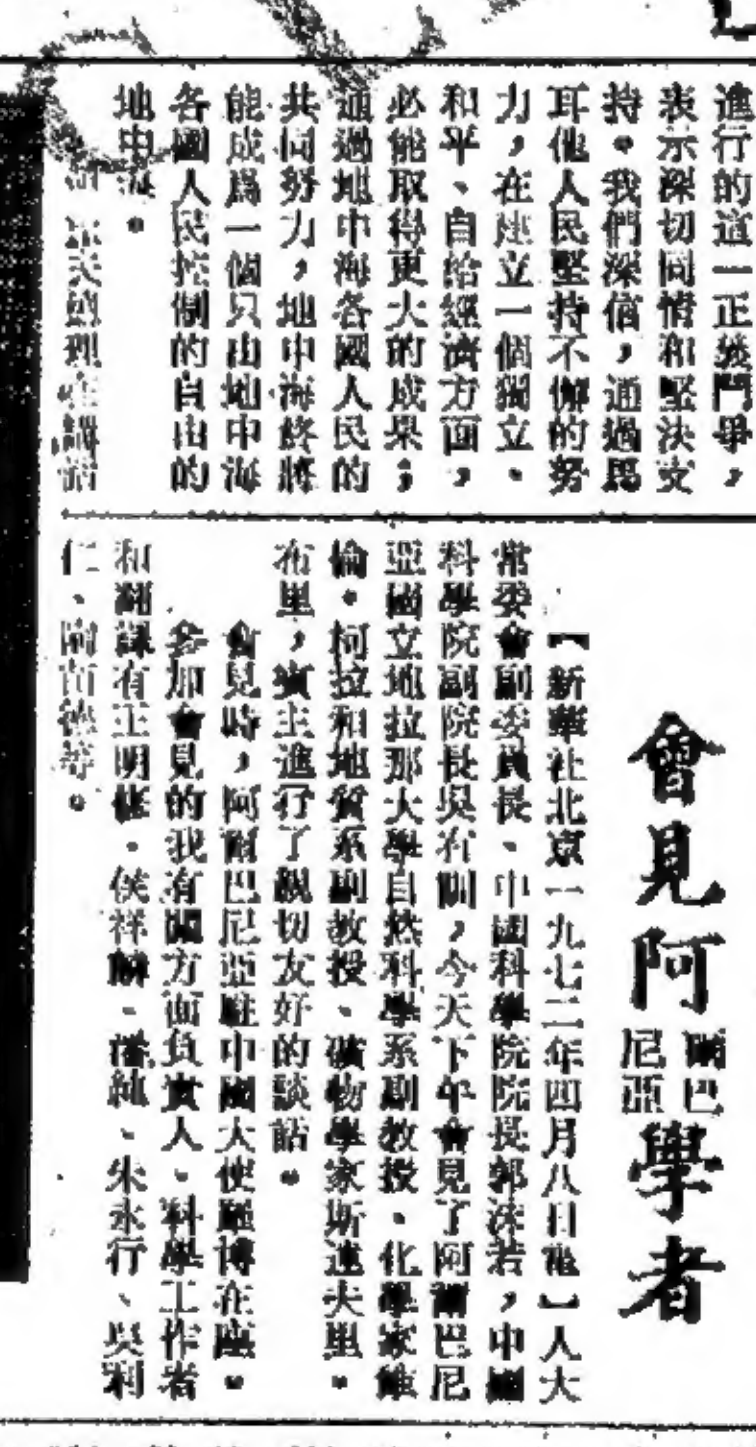 進行的這一正義鬥爭，
表示深切同情和堅決支
持。我們深信，通過馬
耳他人民堅持不懈的努
力，在建立一個獨立、
和平、自給經濟方面，
必能取得更大的成果；
通過地中海各國人民的
共同努力，地中海終將
能成爲一個只由地中海
各國人民控制的自由的
地中海。
理 講話
會見阿爾巴尼亞學者
【新華社北京一九七二年四月八日電】人大
常委會副委員長、中國科學院院長郭沫若，中國
科學院副院長吳有訓，今天下午會見了阿爾巴尼
亞國立地拉那大學自然科學系副教授、化學家維
倫·柯拉和地質系副教授、礦物學家斯達夫里·
布里，賓主進行了親切友好的談話。
會見時，阿爾巴尼亞駐中國大使羅博在座。
參加會見的我有關方面負責人、科學工作者
和翻譯有王明修、侯祥麟、潘純、朱永行、吳利
仁、 等。